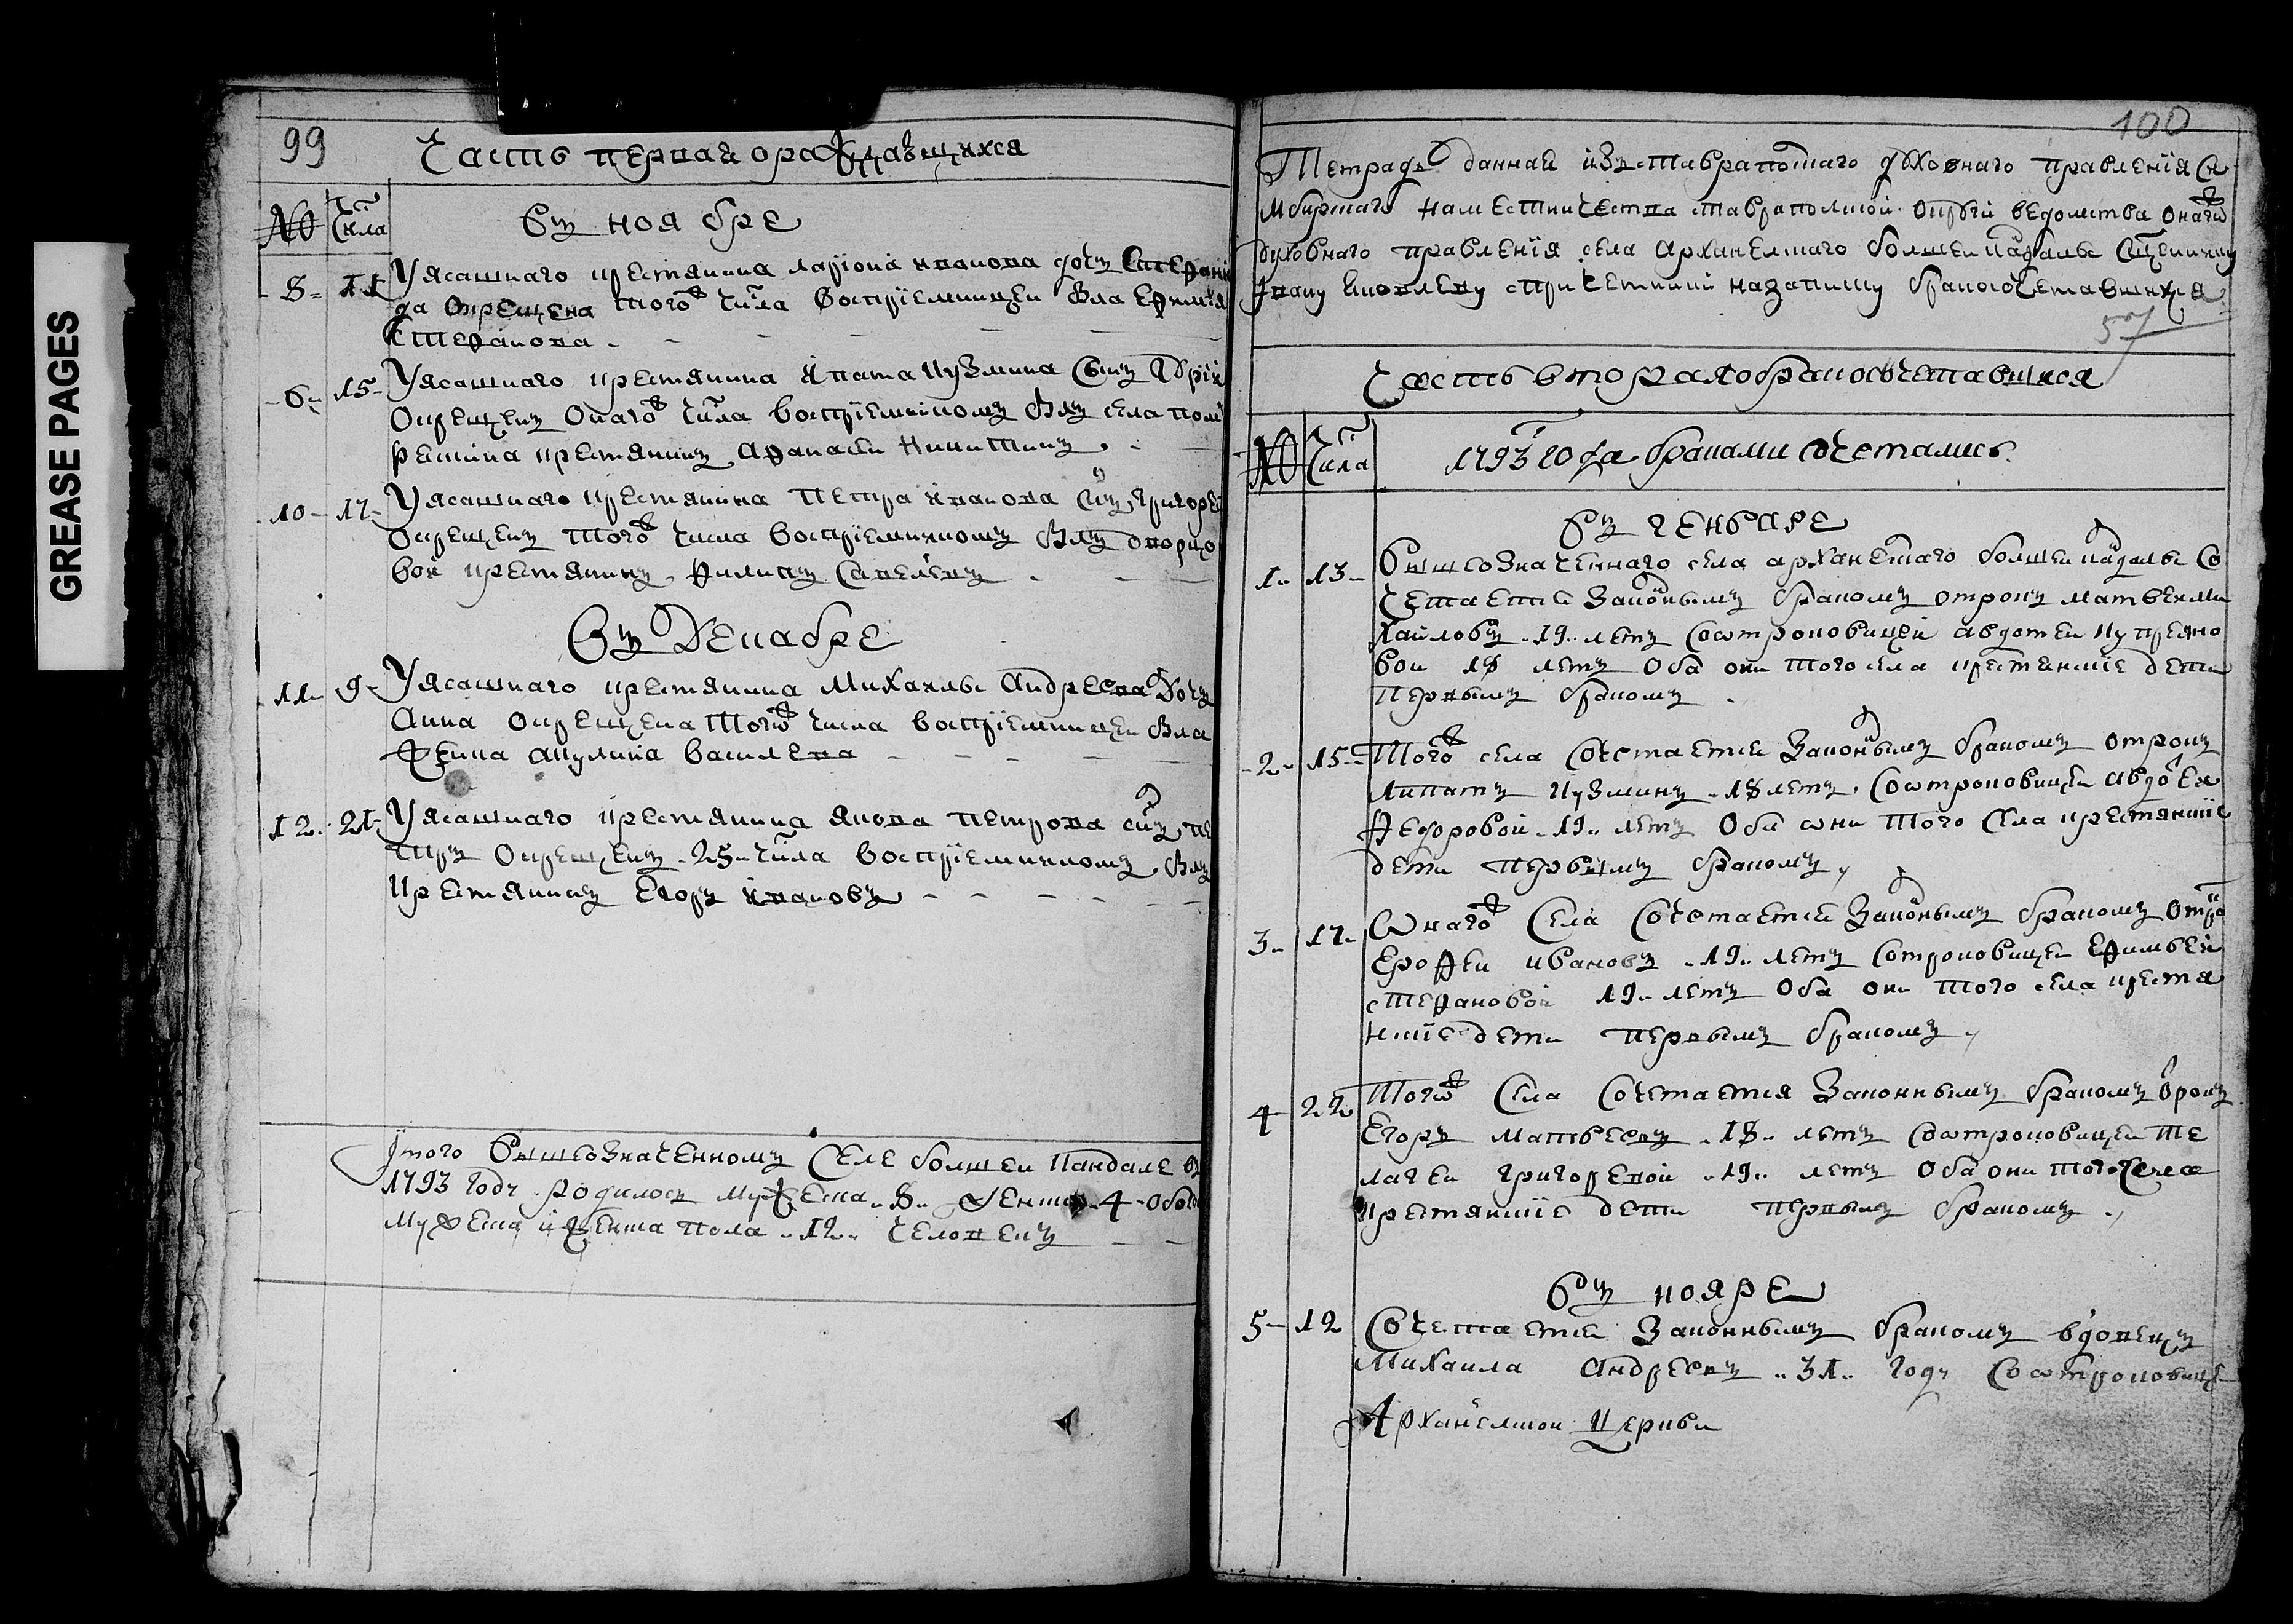 GREASE PAGES
99
Часть первая о раждавшихся
№ Числа
Въ ноябре
8 11 У ясашнаго крестянина Лариона Иванова дочь
да окрещена того числа воспрiемницей была Ефимiя
Степанова
6 15 У ясашнаго крестянина Ипата Кузмина сынъ
окрещенъ онаго числа воспрiемникомъ былъ села
крестянинъ Афанасей Никитинъ
10 17 У ясашнаго крестянина Петра Иванова сынъ Григорей
окрещенъ того числа воспрiемникомъ былъ дворцо
вой крестянинъ Филипъ Савельевъ
Въ Декабре
11 9 У ясашнаго крестянина Михаилы Андреева дочь
Анна окрещена того числа воспрiемницей была
Акулина Василева
12 21 У ясашнаго крестянина Якова Петрова сынъ Пе
тръ окрещенъ 25 числа воспрiемникомъ былъ
крестянинъ Егоръ Ивановъ
Итого вышеозначенномъ селе болшей Кандале въ
1793 году родилось мужеска 8 женска 4 обоего
мужеска и женска пола 12 человекъ
100
Тетрадь данная изъ Ставрапольскаго духовнаго правленiя Си
мбирскаго наместничества ставрапольской округи ведомства онаго
духовнаго правленiя села Архангелскаго болшей Кандалы священнику
Ивану Яковлеву с причетники на записку бракосочетавшихся
57
Часть вторая о бракосочетавшихся
№ Числа
1793 года браками сочетались
Въ генваре
1 13 Вышеозначеннаго села Архангелскаго болшей Кандалы со
четается законнымъ бракомъ отрокъ Матвей Ми
хайловъ 19 летъ со отроковицей Авдотей Купреяно
вой 18 летъ оба они того села крестянскiе дети
первымъ бракомъ
2 15 Того села сочетается законнымъ бракомъ отрокъ
Липатъ Кузминъ 18 летъ со отроковицей Авдотея
Федоровой 19 летъ оба они того села крестянскiе
дети первымъ бракомъ
3 17 Онаго села сочетается законнымъ бракомъ отрокъ
Ерофей Ивановъ 19 летъ со троковицей Ефимьей
Степановой 19 летъ оба они того села крестя
нскiе дети первымъ бракомъ
4 22 Того села сочетается законнымъ бракомъ отрокъ
Егоръ Матвеевъ 18 летъ со отроковицей Пе
лагеи Григоревой 19 летъ оба они того села
крестянскiе дети первымъ бракомъ
Въ ноябре
5 12 Сочетается законнымъ бракомъ вдовецъ
Михаила Андреевъ 31 году со отроковице
Архангелской Церкви